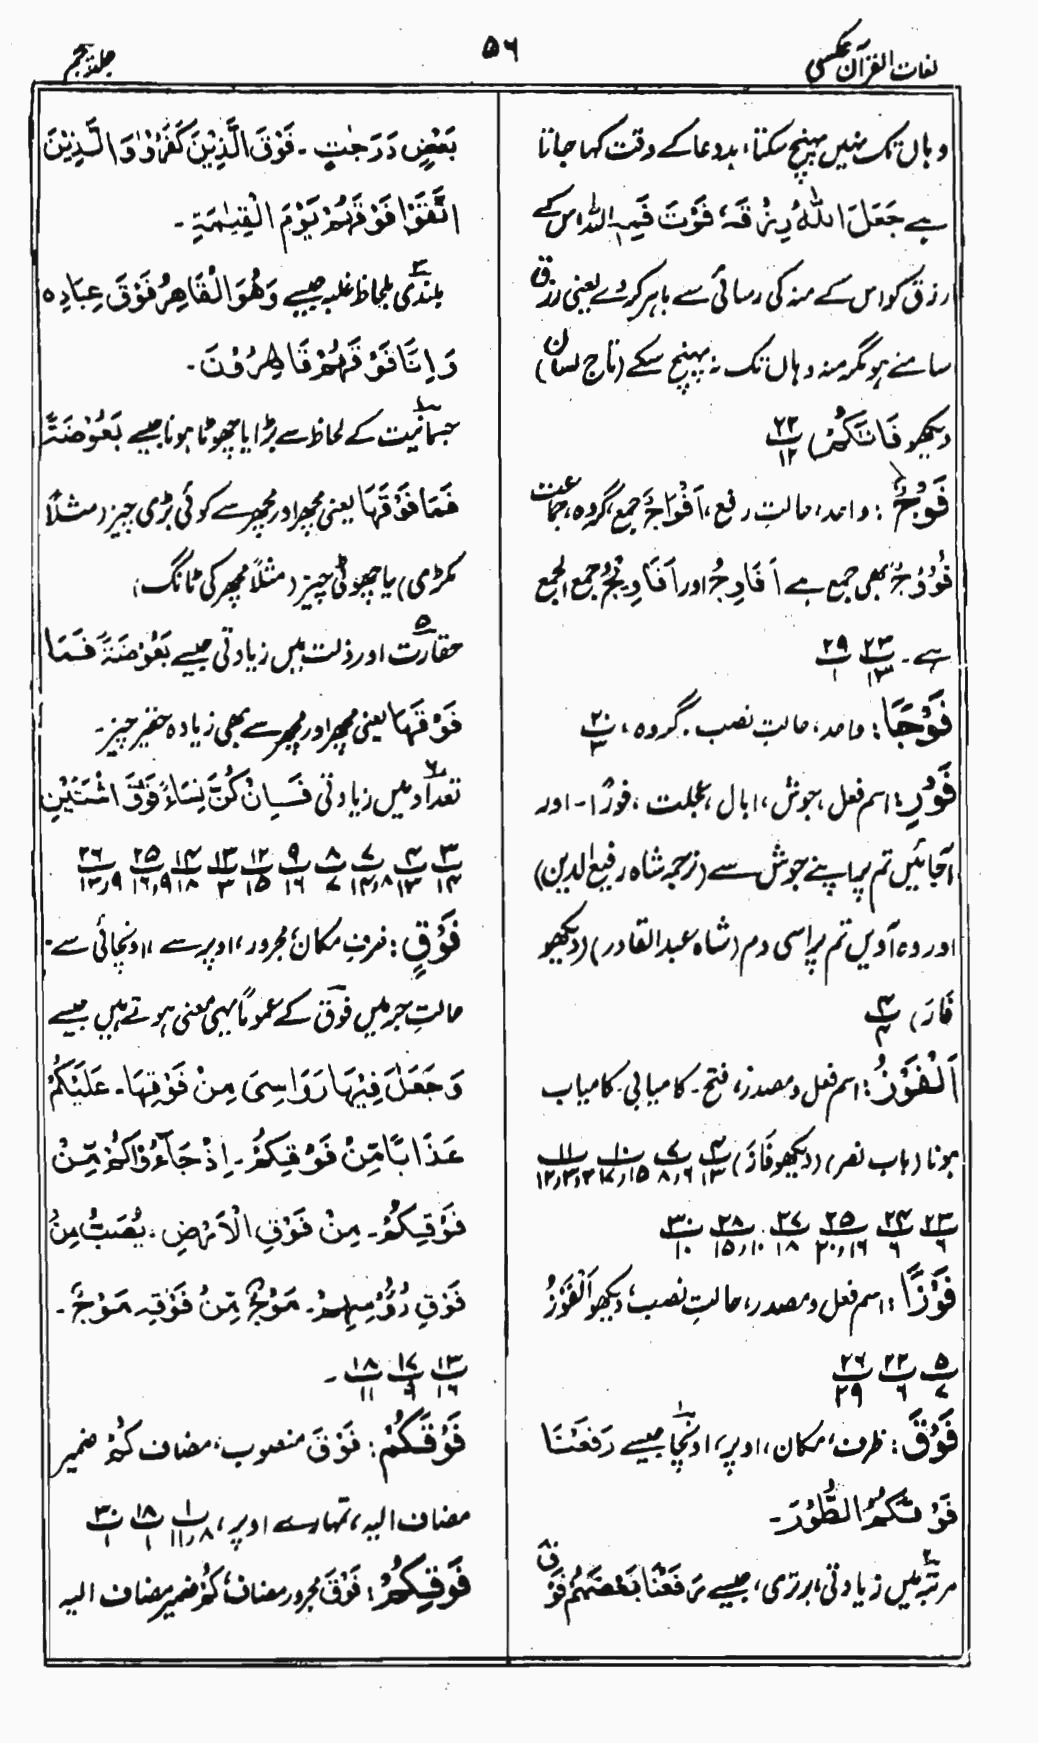 لغات القرآن عکسی
۵۶
جلد پنجم
وہاں تک نہیں پہنچ سکتا، بددعا کے وقت کہا جاتا
ہے جَعَلَ اللهُ رِزْقَہٗ فَوْتَ فَمِہٖ اللہ اس کے
رزق کو اس کے منہ کی رسائی سے باہر کردے یعنی رزق
سامنے ہو مگر منہ وہاں تک نہ پہنچ سکے (تاج لسان)
دیکھو فَاتَكُمْ) ۲۳/۱۲
فَوْجٌ: واحد، حالتِ رفع، اَفْوَاجٌ جمع، گروہ، جماعت
فُؤُوْجٌ بھی جمع ہے اَفَاوِجُ اور اَفَاوِیْجُ جمع الجمع
ہے۔ ۲۳/۱۳ ۲۹/۱
فَوْجًا: واحد، حالتِ نصب۔ گروہ، ۲۰/۳
فَوْرِ: اسم فعل، جوش، ابال، عجلت، فورًا۔ اور
آجائیں تم پر اپنے جوش سے (ترجمہ شاہ رفیع الدین)
اور وہ آویں تم پر اسی دم (شاہ عبدالقادر) (دیکھو
فَارَ) ۴/۴
اَلْفَوْزُ: اسم فعل و مصدر، فتح۔ کامیابی۔ کامیاب
ہونا (باب نصر) (دیکھو فَازَ) ۴/۱۳ ۷/۸٫۶ ۱۰/۱۷٫۱۵ ۱۱/۱۲٫۳٫۲
۲۳/۶ ۲۴/۶ ۲۵/۲۰٫۱۶ ۲۷/۱۸ ۲۸/۱۵٫۱۰ ۳۰/۱۰
فَوْزًا: اسم فعل و مصدر، حالتِ نصب، دیکھو اَلْفَوْزُ
۵/۷ ۲۲/۶ ۲۶/۲۹
فَوْقَ: ظرف، مکان، اوپر، اونچا جیسے رَفَعْنَا
فَوْقَكُمُ الطُّوْرَ۔
مرتبہ میں زیادتی، برتری، جیسے رَفَعْنَا بَعْضَهُمْ فَوْقَ
بَعْضٍ دَرَجٰتٍ۔ فَوْقَ الَّذِیْنَ كَفَرُوْا وَالَّذِیْنَ
اتَّقَوْا فَوْقَهُمْ یَوْمَ الْقِیٰمَةِ۔
بلندی بلحاظ غلبہ جیسے وَهُوَ الْقَاهِرُ فَوْقَ عِبَادِهٖ
وَاِنَّا فَوْقَهُمْ قَاهِرُوْنَ۔
جسمانیت کے لحاظ سے بڑا یا چھوٹا ہونا جیسے بَعُوْضَةً
فَمَا فَوْقَهَا یعنی مچھر اور مچھر سے کوئی بڑی چیز (مثلاً
مکڑی) یا چھوٹی چیز (مثلاً مچھر کی ٹانگ)
حقارت اور ذلت میں زیادتی جیسے بَعُوْضَةً فَمَا
فَوْقَهَا یعنی مچھر اور مچھر سے بھی زیادہ حقیر چیز۔
تعداد میں زیادتی فَاِنْ كُنَّ نِسَآءً فَوْقَ اثْنَتَیْنِ
۳/۱۴ ۴/۱۳ ۷/۱۴٫۸ ۸/۷ ۹/۱۶ ۱۲/۱۵ ۱۳/۳ ۱۴/۱۸ ۲۵/۱۶٫۹ ۲۶/۱۳٫۹
فَوْقِ: ظرف مکان، مجرور، اوپر سے، اونچائی سے۔
حالتِ جر میں فوق کے عموماً یہی معنی ہوتے ہیں جیسے
وَجَعَلَ فِیْهَا رَوَاسِیَ مِنْ فَوْقِهَا۔ عَلَیْكُمْ
عَذَابًا مِّنْ فَوْقِكُمْ۔ اِذْ جَآءُوْكُمْ مِّنْ
فَوْقِكُمْ۔ مِنْ فَوْقِ الْاَرْضِ۔ یُصَبُّ مِنْ
فَوْقِ رُءُوْسِهِمْ۔ مَوْجٌ مِّنْ فَوْقِهٖ مَوْجٌ۔
۱۳/۱۶ ۱۷/۹ ۱۸/۱۱۔
فَوْقَكُمْ: فَوْقَ منصوب، مضاف كُمْ ضمیر
مضاف الیہ، تمہارے اوپر، ۱/۱۱٫۸ ۱۸/۱ ۳۰/۱
فَوْقِكُمْ: فَوْقِ مجرور مضاف، كُمْ ضمیر مضاف الیہ